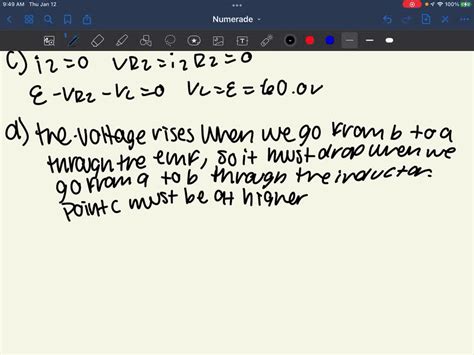 9:49 AM Thu Jan 12
100%
Numerade
c) i2=0 VR2=i2R2=0
ε-VR2-VL=0 VL=ε=60.0V
d) the voltage rises when we go from b to a
through the emf, so it must drop when we
go from a to b through the inductor.
Point c must be at higher